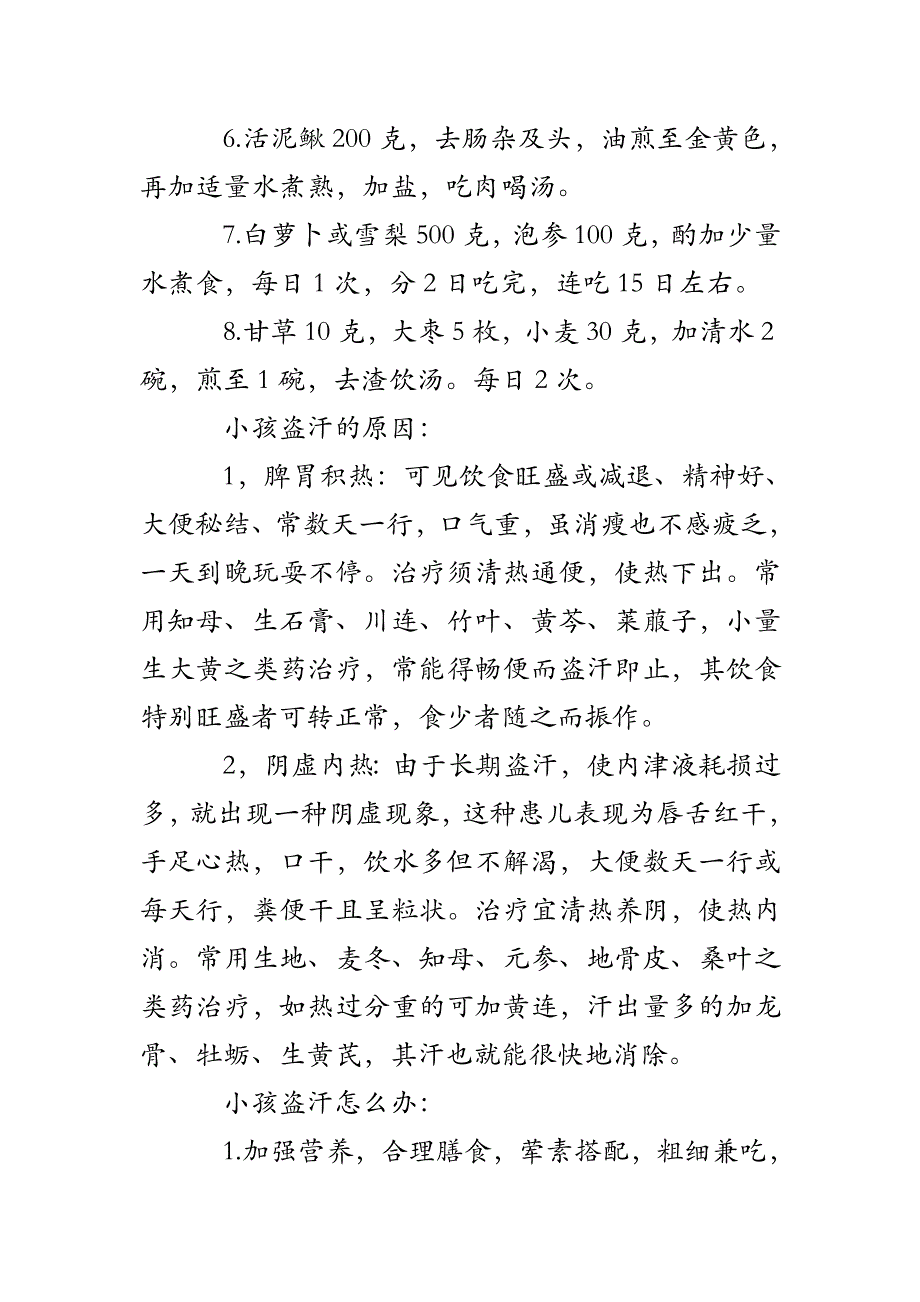 6.活泥鳅 200 克，去肠杂及头，油煎至金黄色，
再加适量水煮熟，加盐，吃肉喝汤。
7.白萝卜或雪梨 500 克，泡参 100 克，酌加少量
水煮食，每日 1 次，分 2 日吃完，连吃 15 日左右。
8.甘草 10 克，大枣 5 枚，小麦 30 克，加清水 2
碗，煎至 1 碗，去渣饮汤。每日 2 次。
小孩盗汗的原因：
1，脾胃积热：可见饮食旺盛或减退、精神好、
大便秘结、常数天一行，口气重，虽消瘦也不感疲乏，
一天到晚玩耍不停。治疗须清热通便，使热下出。常
用知母、生石膏、川连、竹叶、黄芩、莱菔子，小量
生大黄之类药治疗，常能得畅便而盗汗即止，其饮食
特别旺盛者可转正常，食少者随之而振作。
2，阴虚内热：由于长期盗汗，使内津液耗损过
多，就出现一种阴虚现象，这种患儿表现为唇舌红干，
手足心热，口干，饮水多但不解渴，大便数天一行或
每天行，粪便干且呈粒状。治疗宜清热养阴，使热内
消。常用生地、麦冬、知母、元参、地骨皮、桑叶之
类药治疗，如热过分重的可加黄连，汗出量多的加龙
骨、牡蛎、生黄芪，其汗也就能很快地消除。
小孩盗汗怎么办：
1.加强营养，合理膳食，荤素搭配，粗细兼吃，